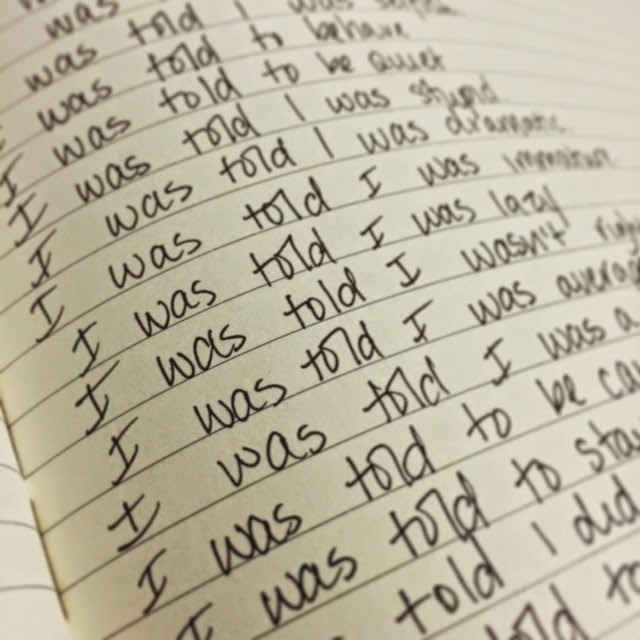 was told I was
was told to behave
was told to be quiet
I was told I was stupid
I was told I was dramatic
I was told I was
I was told I was lazy
I was told I wasn't
I was told I was
I was told I was a
I was told to be
I was told to stay
I told I did
told